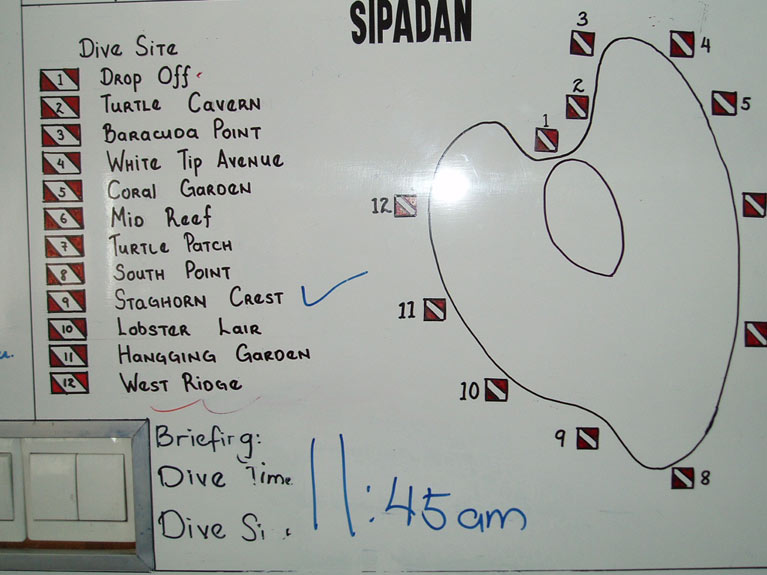 SIPADAN
Dive Site
1 Drop Off
2 Turtle Cavern
3 Baracuda Point
4 White Tip Avenue
5 Coral Garden
6 Mid Reef
7 Turtle Patch
8 South Point
9 Staghorn Crest
10 Lobster Lair
11 Hangging Garden
12 West Ridge
3
4
2
5
1
12
11
10
9
8
Briefing:
Dive Time
11:45am
Dive Si